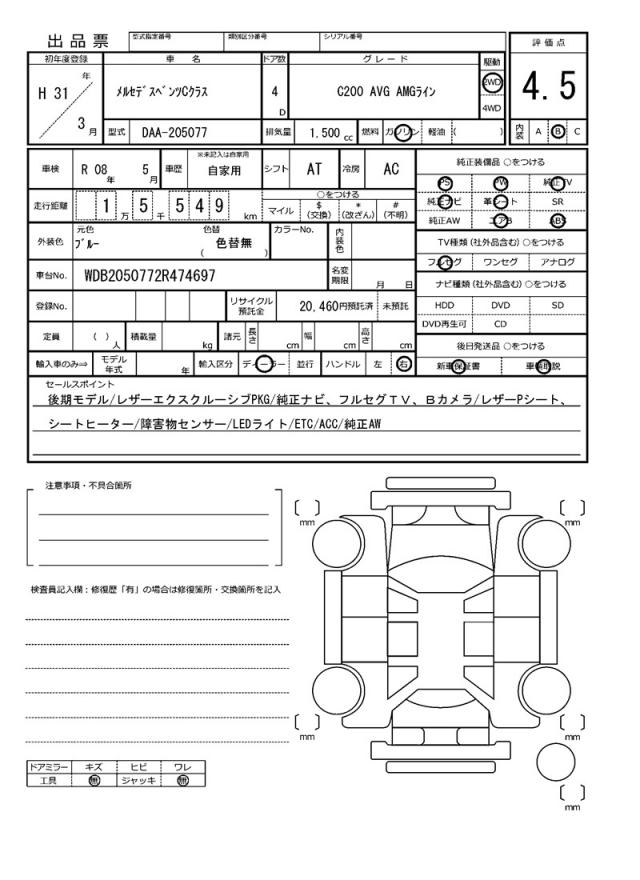 出品票
型式指定番号 類別区分番号 シリアル番号
初年度登録 車名 ドア数 グレード 駆動 評価点
H 31 年 3 月
ﾒﾙｾﾃﾞｽﾍﾞﾝﾂCｸﾗｽ
4 D
C200 AVG AMGﾗｲﾝ
2WD
4WD
4.5
型式 DAA-205077 排気量 1.500 cc 燃料 ガソリン 軽油 ( ) 内装 A B C
車検 R 08 年 5 月 車歴 ※未記入は自家用 自家用 シフト AT 冷房 AC
走行距離 1 万 5 千 5 4 9 km
○をつける
マイル $ (交換) * (改ざん) # (不明)
外装色 元色 ﾌﾞﾙｰ 色替 ( 色替無 ) カラーNo. 内装色
車台No. WDB2050772R474697 名変期限 月 日
登録No. リサイクル預託金 20,460円預託済 未預託
定員 ( ) 人 積載量 kg 諸元 長さ cm 幅 cm 高さ cm
輸入車のみ⇒ モデル年式 年 輸入区分 ディーラー 並行 ハンドル 左 右
純正装備品 ○をつける
PS PW 純正TV
純正ナビ 革シート SR
純正AW エアB ABS
TV種類(社外品含む)○をつける
フルセグ ワンセグ アナログ
ナビ種類(社外品含む)○をつける
HDD DVD SD
DVD再生可 CD
後日発送品 ○をつける
新車保証書 車輌取説
セールスポイント
後期モデル/レザーエクスクルーシブPKG/純正ナビ、フルセグTV、Bカメラ/レザーPシート、
シートヒーター/障害物センサー/LEDライト/ETC/ACC/純正AW
注意事項・不具合箇所
検査員記入欄：修復歴「有」の場合は修復箇所・交換箇所を記入
ドアミラー キズ ヒビ ワレ
工具 無 ジャッキ 無
mm mm
mm mm
mm